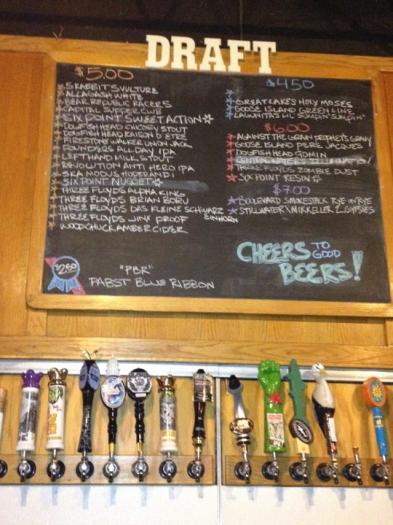 DRAFT
$5.00
5 RABBIT 5 VULTURE
ALLAGASH WHITE
BEAR REPUBLIC RACER 5
CAPITAL SUPPER CLUB
SIX POINT SWEET ACTION
DOGFISH HEAD CHICORY STOUT
DOGFISH HEAD RAISON D'ETRE
FIRESTONE WALKER UNION JACK
FOUNDERS ALL DAY IPA
LEFT HAND MILK STOUT
REVOLUTION ANTI HERO IPA
SKA MODUS HOPERANDI
SIX POINT NUGGET
THREE FLOYDS ALPHA KING
THREE FLOYDS BRIAN BORU
THREE FLOYDS DAS KLEINE SCHWARZ EINHORN
THREE FLOYDS JINX PROOF
WOODCHUCK AMBER CIDER
$2.50
"PBR"
PABST BLUE RIBBON
$4.50
GREAT LAKES HOLY MOSES
GOOSE ISLAND GREEN LINE
LAGUNITAS LIL SUMPIN' SUMPIN'
$6.00
AGAINST THE GRAIN PROPHETS GRAVY
GOOSE ISLAND PERE JACQUES
DOGFISH HEAD 90 MIN
THREE FLOYDS ZOMBIE DUST
SIX POINT RESIN
$7.00
BOULEVARD SMOKESTACK RYE ON RYE
STILLWATER MIKKELLER GYPSIES
CHEERS TO
GOOD
BEERS!